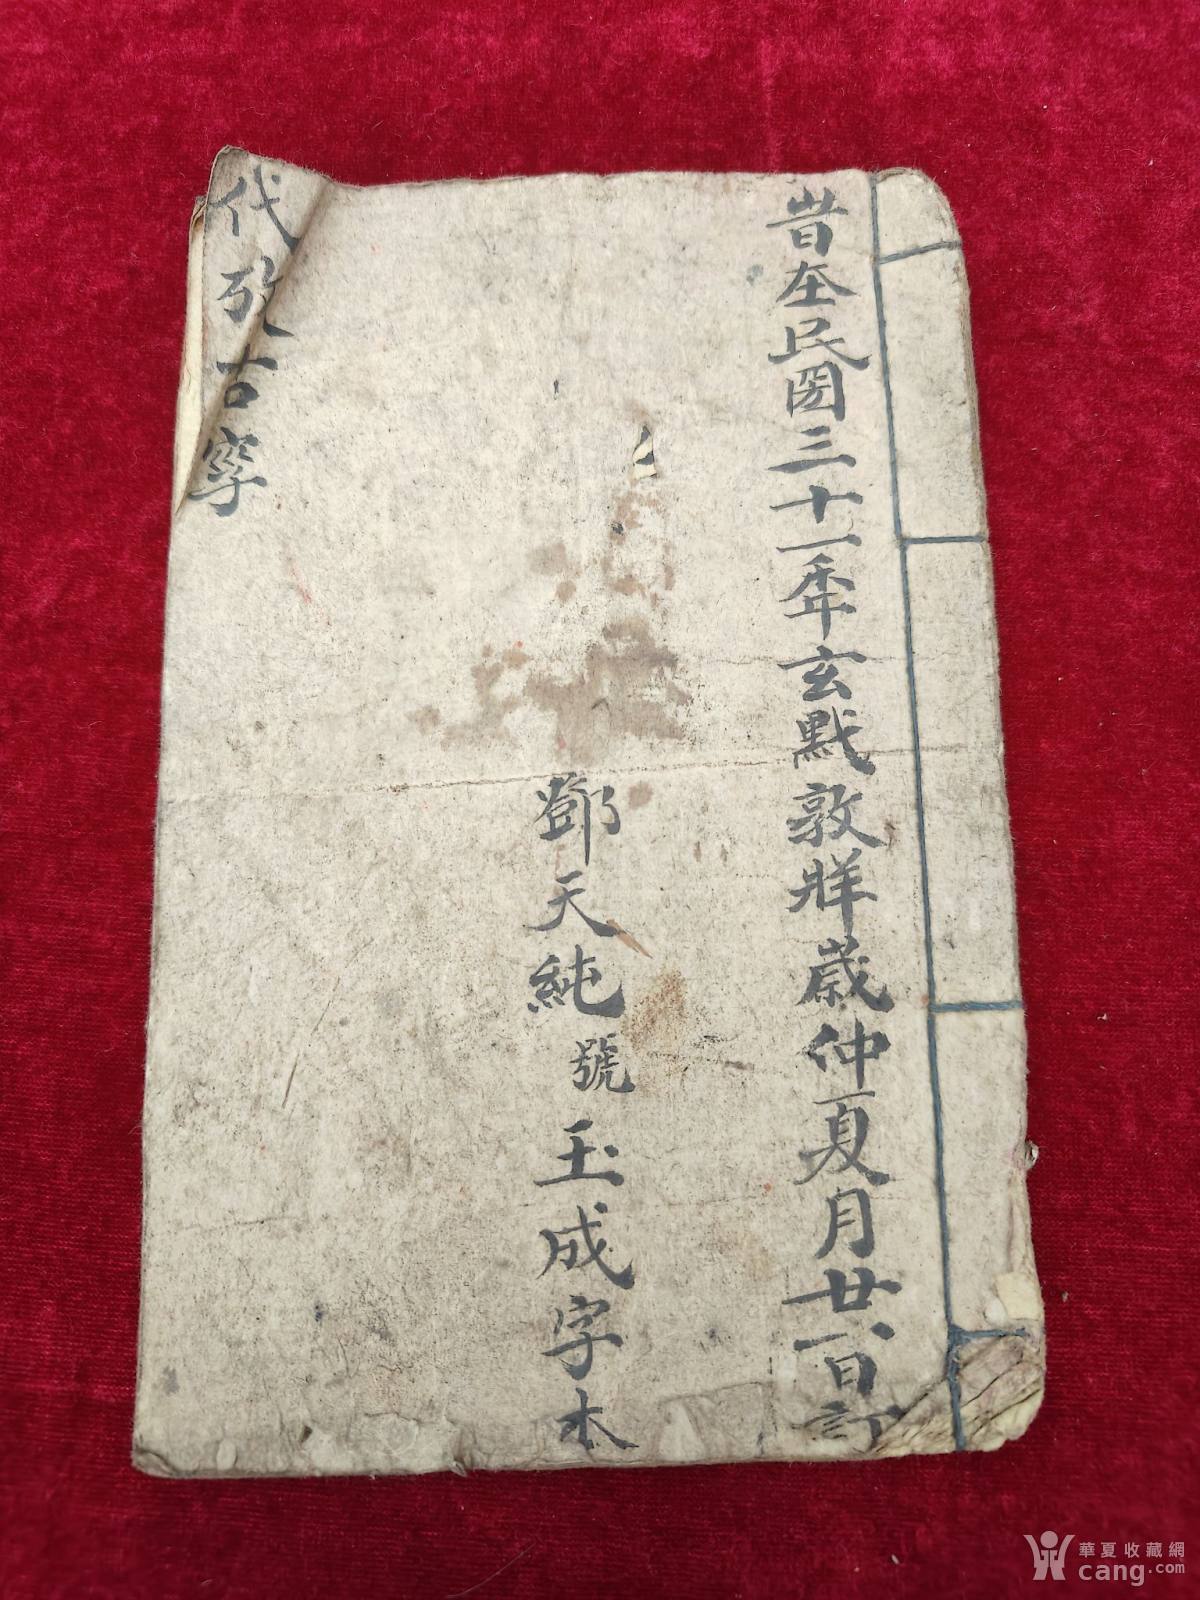 旹在民圀三十一秊玄黓敦牂歲仲夏月廿八日訂
鄧天純號玉成字本
代攷古字
華夏收藏網
cang.com